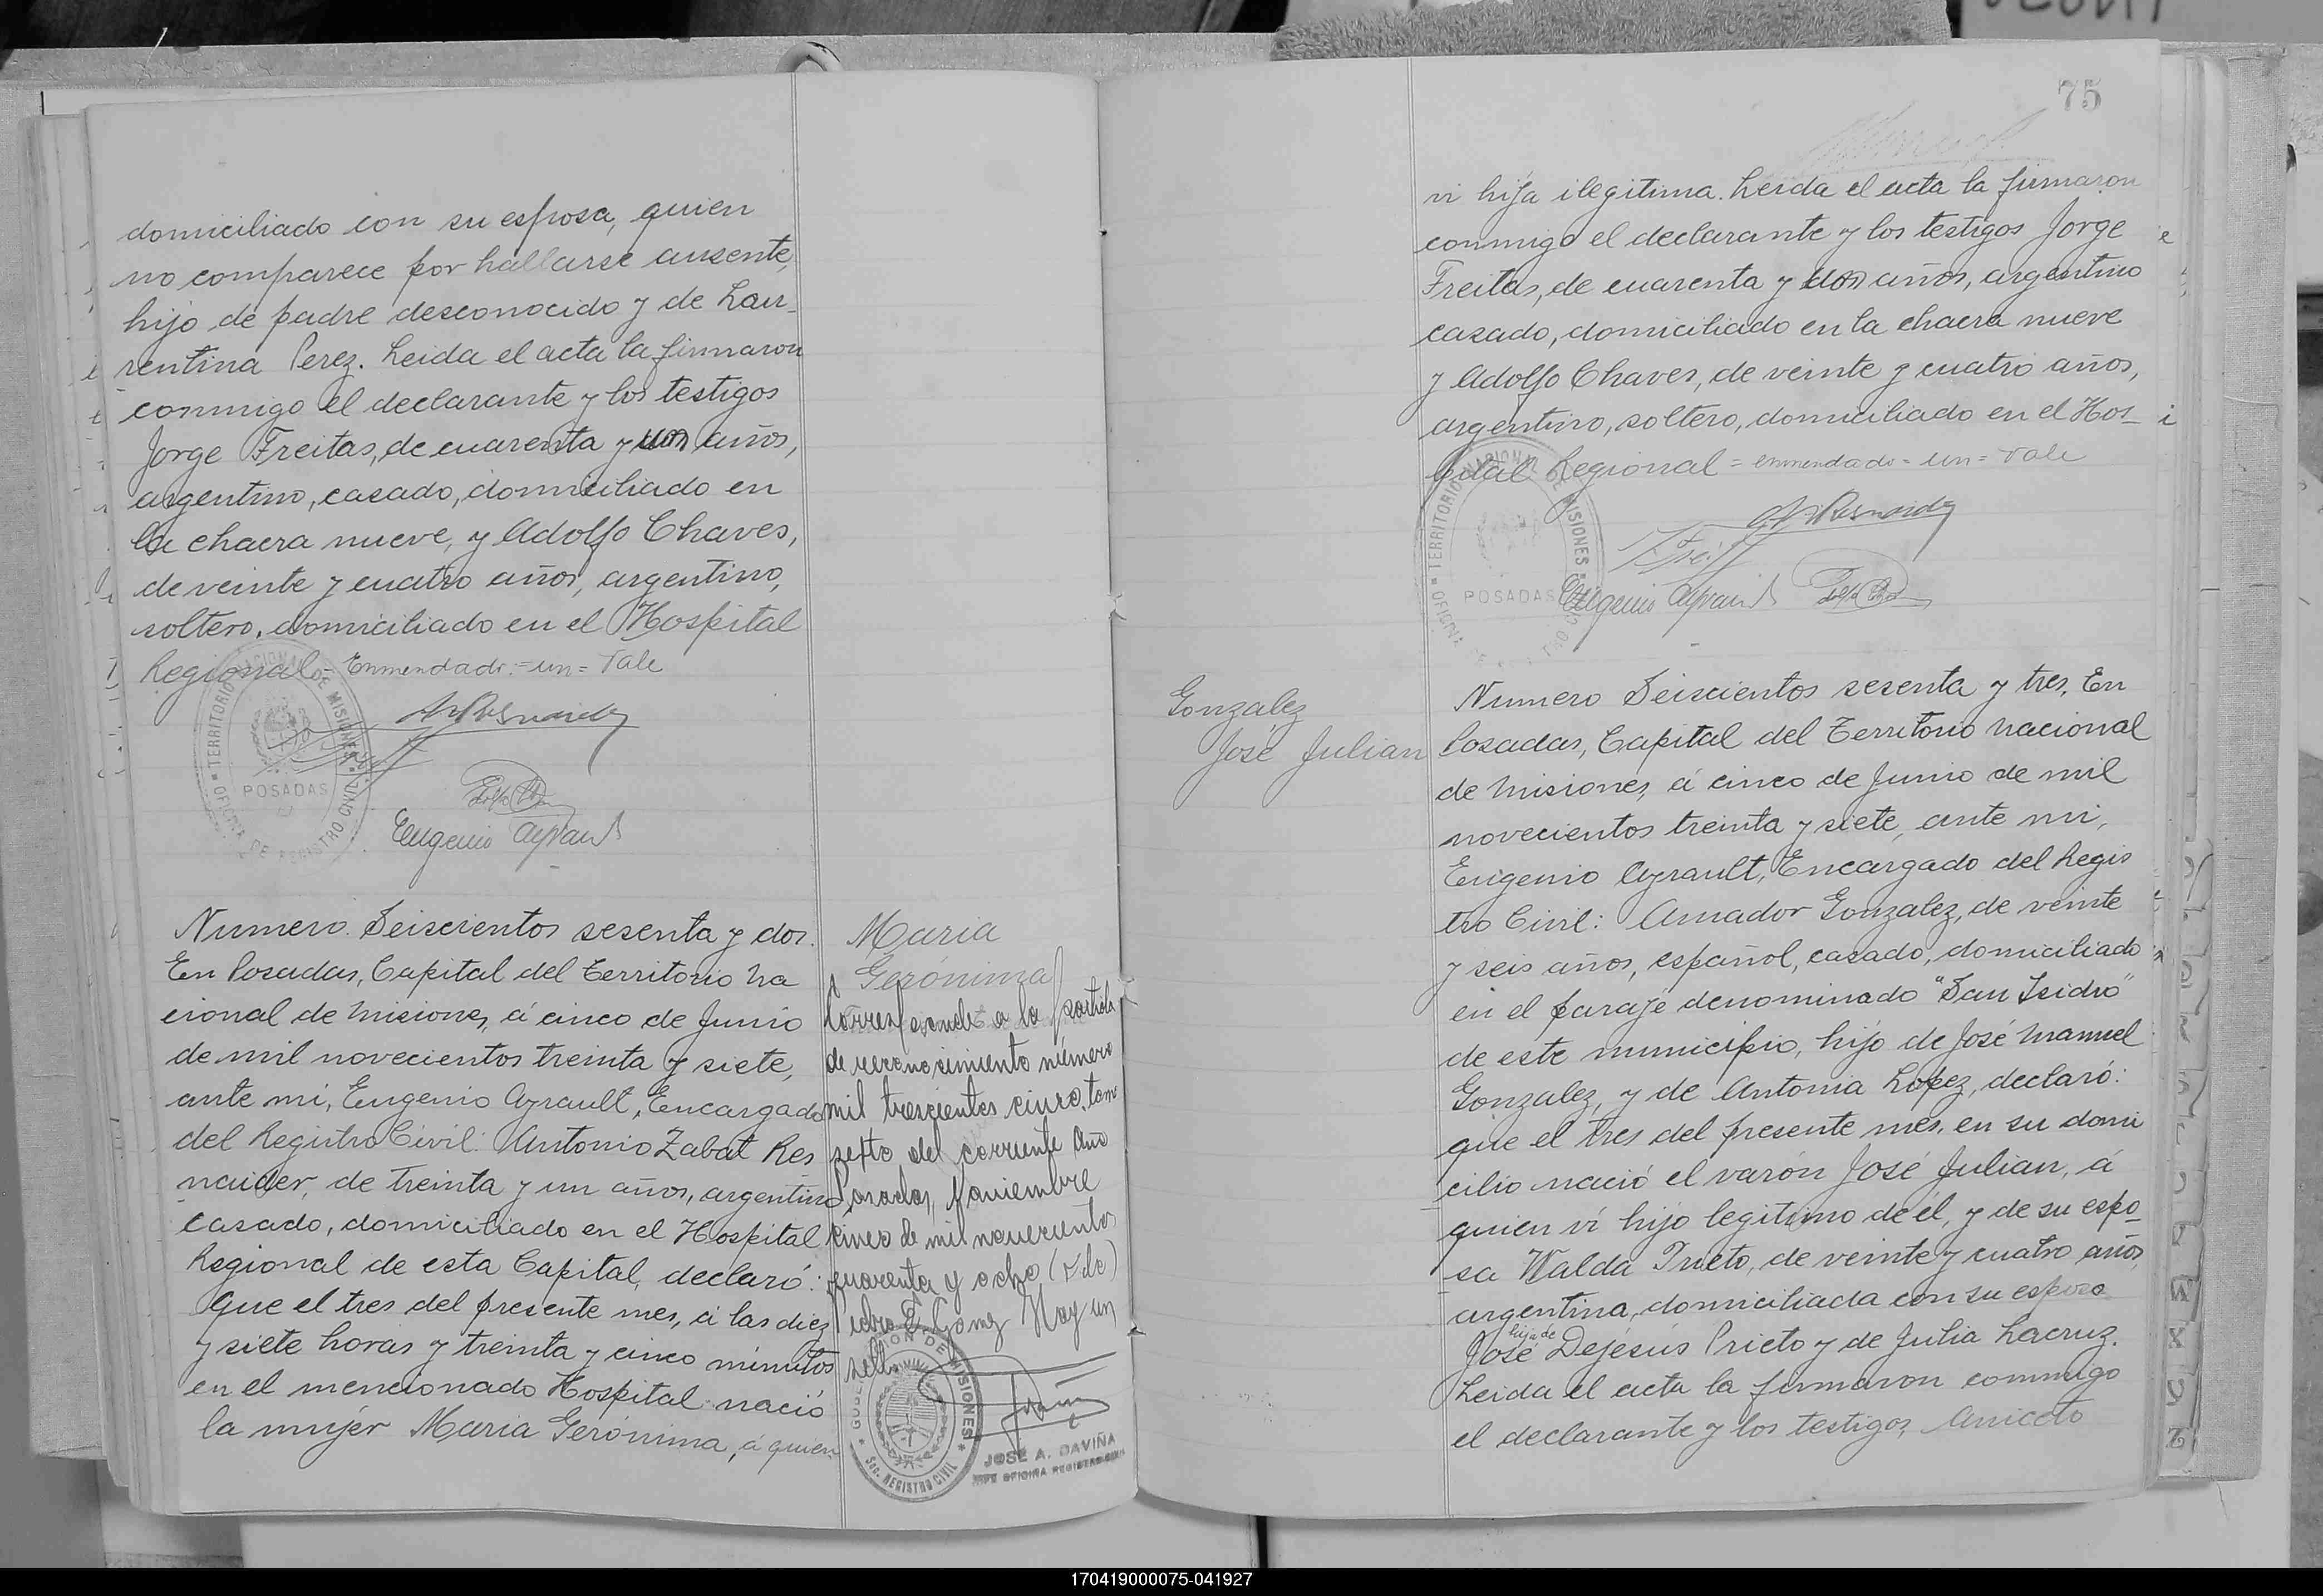 domiciliado con su esposa, quien
no comparece por hallarse ausente,
hijo de padre desconocido y de Lau-
rentina Perez. Leida el acta la firmaron
conmigo el declarante y los testigos
Jorge Freitas, de cuarenta y un años,
argentino, casado, domiciliado en
la chacra nueve, y Adolfo Chaves,
de veinte y cuatro años, argentino,
soltero, domiciliado en el Hospital
Regional = Enmendado = un = Vale
TERRITORIO NACIONAL DE MISIONES
POSADAS
OFICINA DE REGISTRO CIVIL
Eugenio Ayrault
Numero Seiscientos sesenta y dos.
En Posadas, Capital del Territorio Na
cional de Misiones, á cinco de Junio
de mil novecientos treinta y siete,
ante mi, Eugenio Ayrault, Encargado
del Registro Civil: Antonio Zabat Res
naider, de treinta y un años, argentino,
casado, domiciliado en el Hospital
Regional de esta Capital, declaró:
Que el tres del presente mes, á las diez
y siete horas y treinta y cinco minutos
en el mencionado Hospital nació
la mujer Maria Gerónima, á quien
Maria
Gerónima
Corresponde a la partida
de reconocimiento número
mil trescientos cinco, tomo
sexto del corriente año
Posadas, Noviembre
cinco de mil novecientos
cuarenta y ocho (Fdo)
Pedro E. Gomez Hay un
sello
DE MISIONES
Sec. REGISTRO CIVIL
JOSÉ A. DAVIÑA
JEFE OFICINA REGISTRO CIVIL
75
vi hija ilegitima. Leida el acta la firmaron
conmigo el declarante y los testigos Jorge
Freitas, de cuarenta y un años, argentino
casado, domiciliado en la chacra nueve
y Adolfo Chaves, de veinte y cuatro años,
argentino, soltero, domiciliado en el Hos-
pital Regional = enmendado = un = Vale
TERRITORIO NACIONAL DE MISIONES
POSADAS
Eugenio Ayrault
Gonzalez
José Julian
Numero Seiscientos sesenta y tres. En
Posadas, Capital del Territorio Nacional
de Misiones, á cinco de Junio de mil
novecientos treinta y siete, ante mi,
Eugenio Ayrault, Encargado del Regis
tro Civil: Amador Gonzalez, de veinte
y seis años, español, casado, domiciliado
en el paraje denominado "San Isidro"
de este municipio, hijo de José Manuel
Gonzalez, y de Antonia Lopez, declaró:
que el tres del presente mes, en su domi
cilio nació el varón José Julian, á
quien ví hijo legitimo de él, y de su espo-
sa Walda Prieto, de veinte y cuatro años,
argentina, domiciliada con su esposo
hija de
José Dejesús Prieto y de Julia Lacruz.
Leida el acta la firmaron conmigo
el declarante y los testigos Aniceto
170419000075-041927